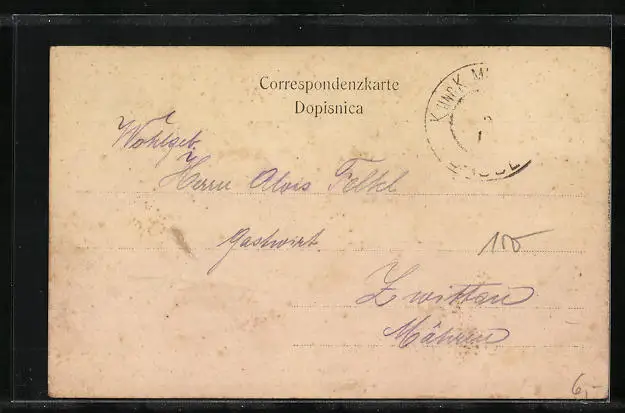 Correspondenzkarte
Dopisnica
Wohlgeb.
Herrn Alois Felkl
Gastwirt.
100
Zwittau
Mähren
6,-